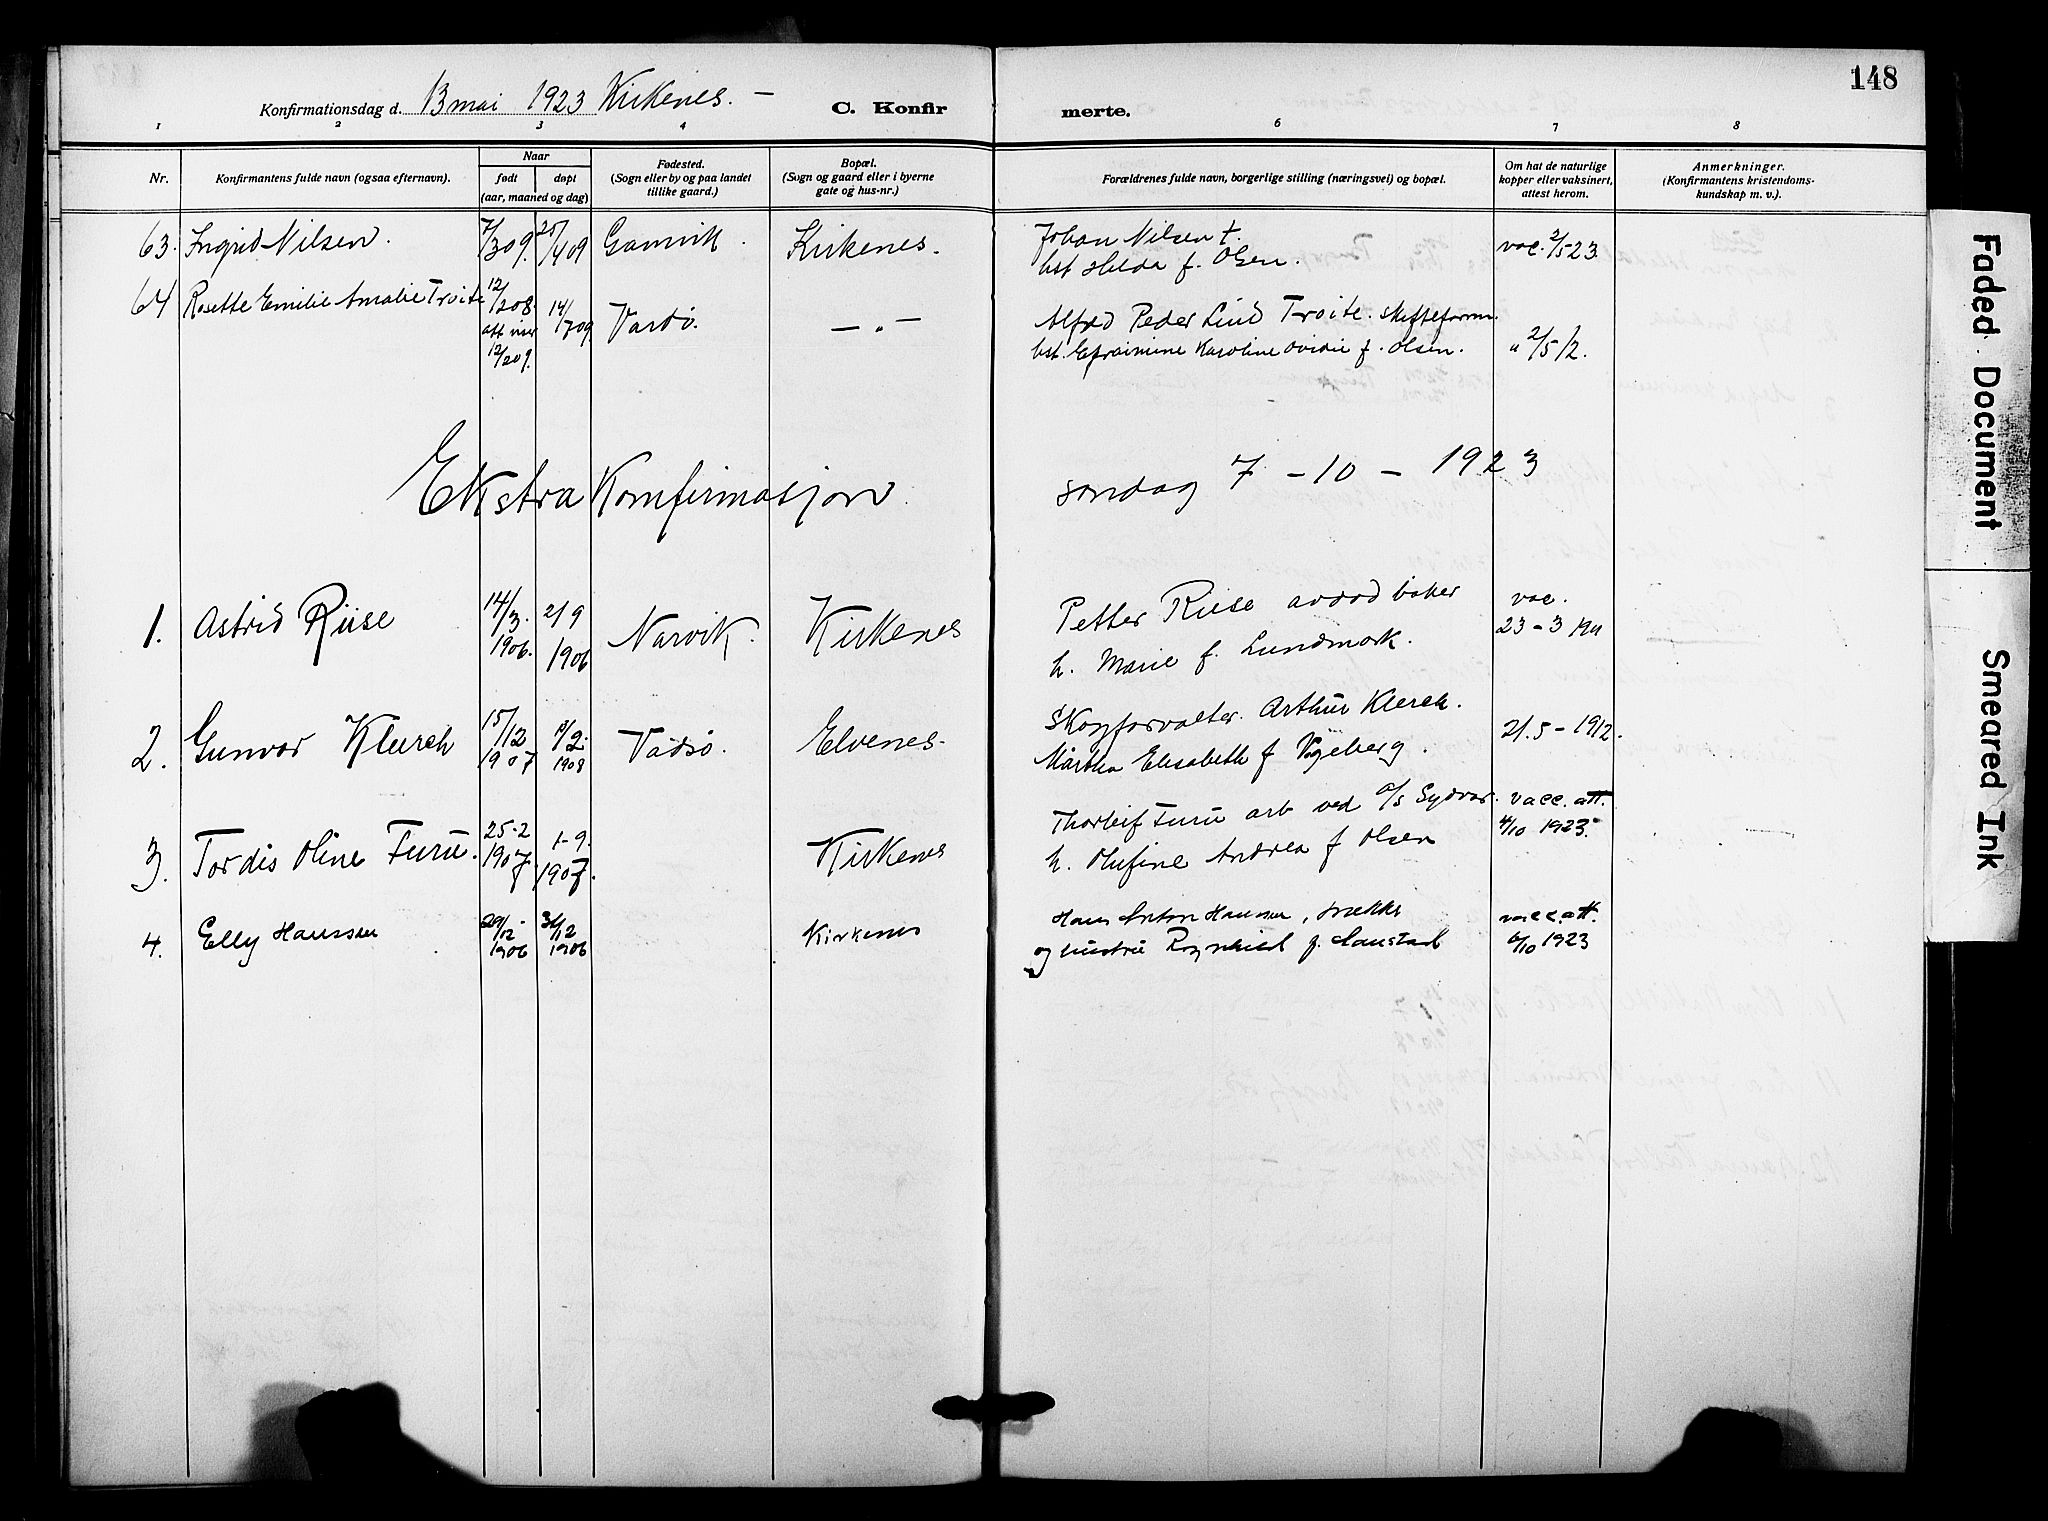 148
Konfirmationsdag d. 13 mai 1923 Kirkenes. –
C. Konfir merte.
1 2 3 4 5 6 7 8
Nr.
Konfirmantens fulde navn (ogsaa efternavn).
Naar
født døpt
(aar, maaned og dag)
Fødested.
(Sogn eller by og paa landet
tillike gaard.)
Bopæl.
(Sogn og gaard eller i byerne
gate og hus-nr.)
Forældrenes fulde navn, borgerlige stilling (næringsvei) og bopæl.
Om hat de naturlige
kopper eller vaksinert,
attest herom.
Anmerkninger.
(Konfirmantens kristendoms-
kundskap m. v.).
63. Ingrid Nilsen. 7/3 09. 25/4 09 Gamvik. Kirkenes. Johan Nilsen †. vac. 2/5 23
hst Hilda f. Olsen.
64 Rosette Emilie Amalie Troite 12/2 08. 14/7 09. Vardø. – „ – Alfred Peder Lind Troite. skifteform.
12/2 09. hst. Efraimine Karoline Ovidie f. Olsen. " 2/5 12.
Ekstra Konfirmasjon søndag 7 – 10 – 1923
1. Astrid Riise 14/3. 1906. 2/9 1906 Narvik. Kirkenes Petter Riise avdød baker vac.
h. Marie f. Lundmark. 23 – 3 1911
2. Gunvor Klerck 15/12 1907 /2. 1908 Vadsø. Elvenes. Skogforvalter. Arthur Klerck. 21. 5 – 1912.
Martha Elisabeth f
3. Tordis Oline Furu. 25-2 1907 1-9. 1907. Kirkenes Thorleif Furu arb ved a/s Sydvar. vacc. att.
h. Olufine Andrea f Olsen 4/10 1923.
4. Elly Hanssen 29/12 1906 31/12 1906 Kirkenes Hans Anton Hanssen, vacc. att.
og hustru Ragnhild f. 6/10 1923
Faded Document
Smeared Ink